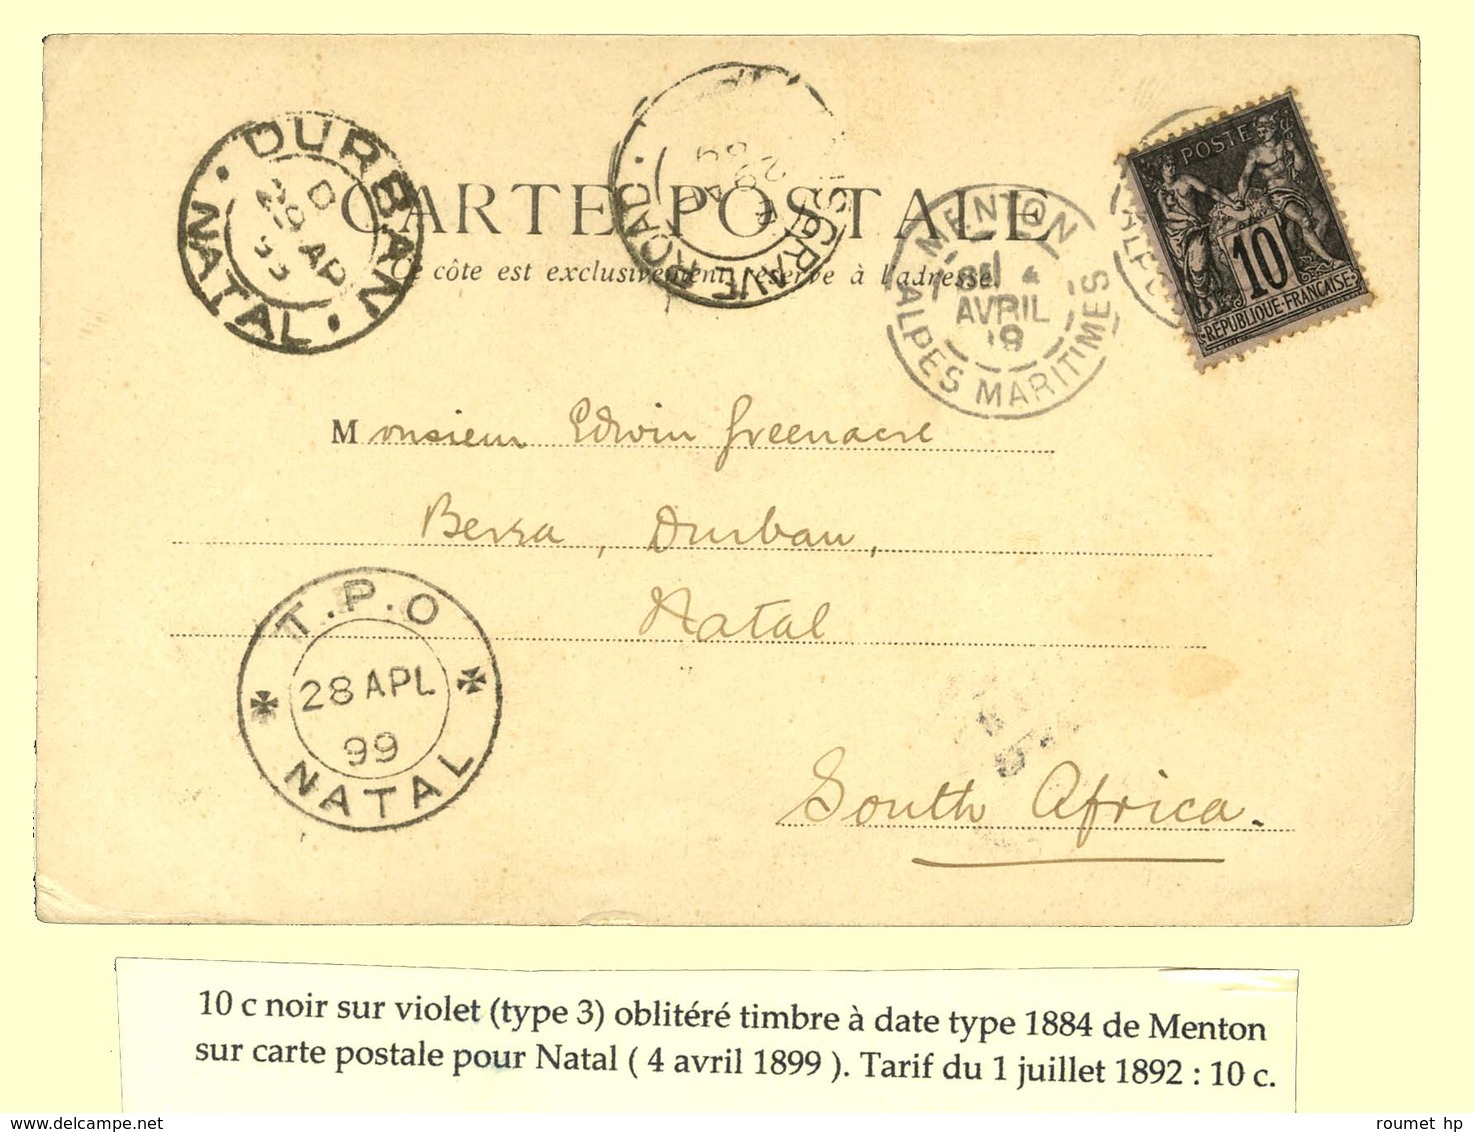 CARTE POSTALE
Ce côté est exclusivement réservé à l'adresse
DURBAN
NATAL
D
AP
MUSGRAVE ROAD
MENTON
4
AVRIL
ALPES MARITIMES
POSTE
10
REPUBLIQUE-FRANCAISE
Monsieur Edwin Greenacre
Berea, Durban,
Natal
South Africa.
T.P.O
28 APL
99
NATAL
10 c noir sur violet (type 3) oblitéré timbre à date type 1884 de Menton
sur carte postale pour Natal ( 4 avril 1899 ). Tarif du 1 juillet 1892 : 10 c.
roumet hp